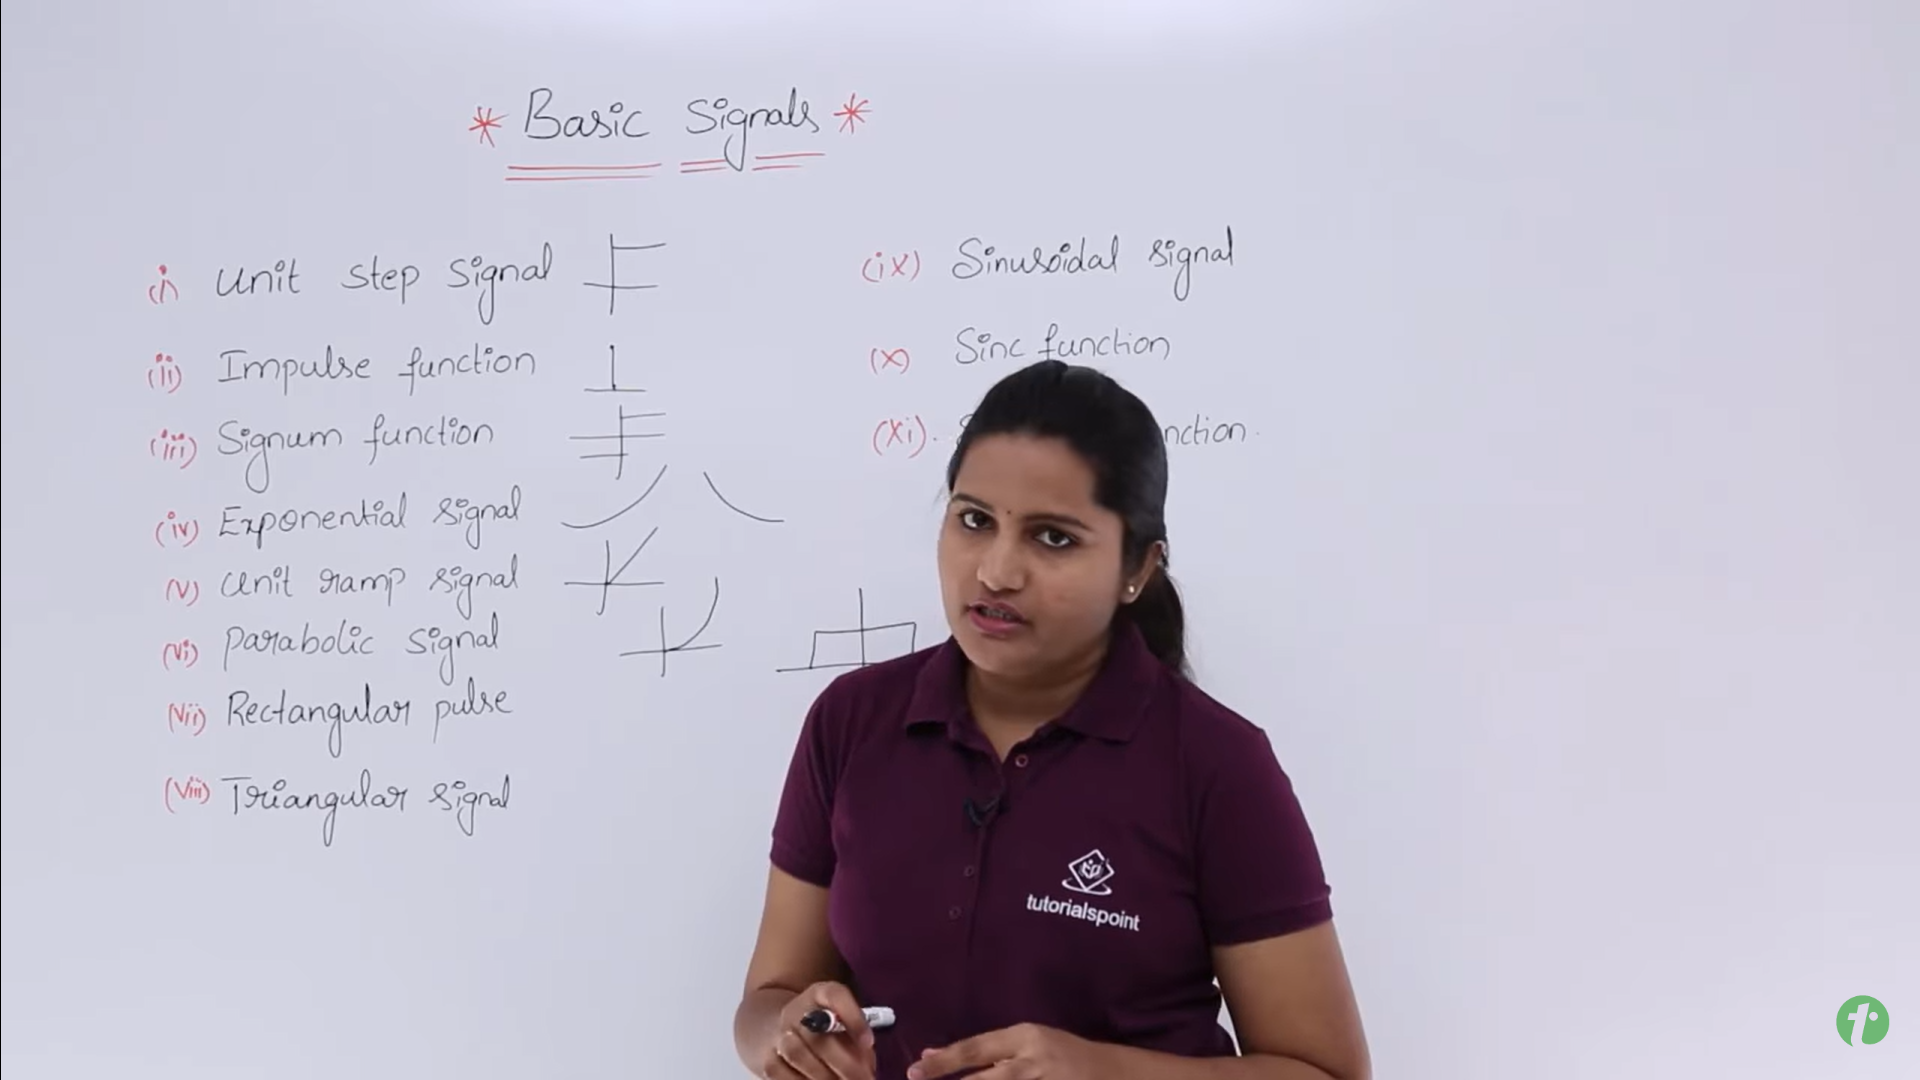 * Basic Signals *
(i) Unit step signal
(ii) Impulse function
(iii) Signum function
(iv) Exponential signal
(v) Unit ramp signal
(vi) parabolic signal
(vii) Rectangular pulse
(viii) Triangular signal
(ix) Sinusoidal signal
(x) Sinc function
(xi).
tutorialspoint